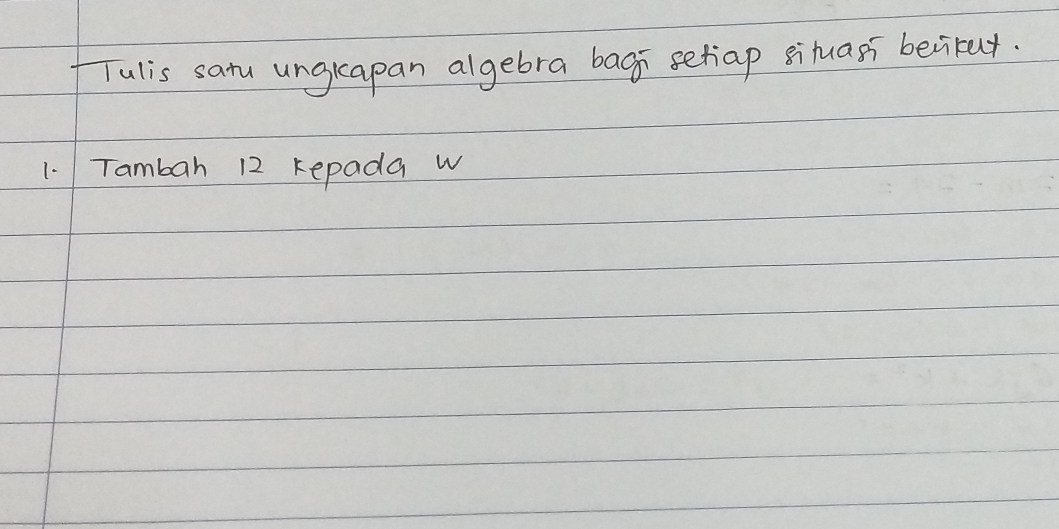 Tulis satu ungkapan algebra bagi setiap situasi berikut.
1. Tambah 12 kepada w